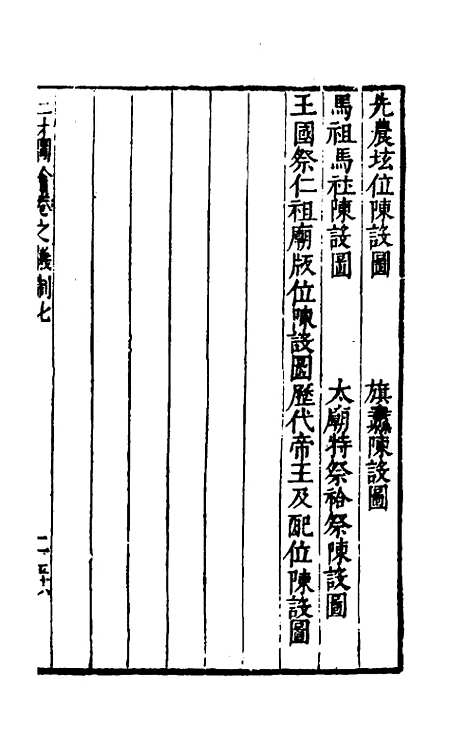 先農垓位陳設圖　旗纛陳設圖
馬祖馬社陳設圖　太廟特祭祫祭陳設圖
王國祭仁祖廟版位陳設圖歷代帝王及配位陳設圖
三才圖會卷之儀制七